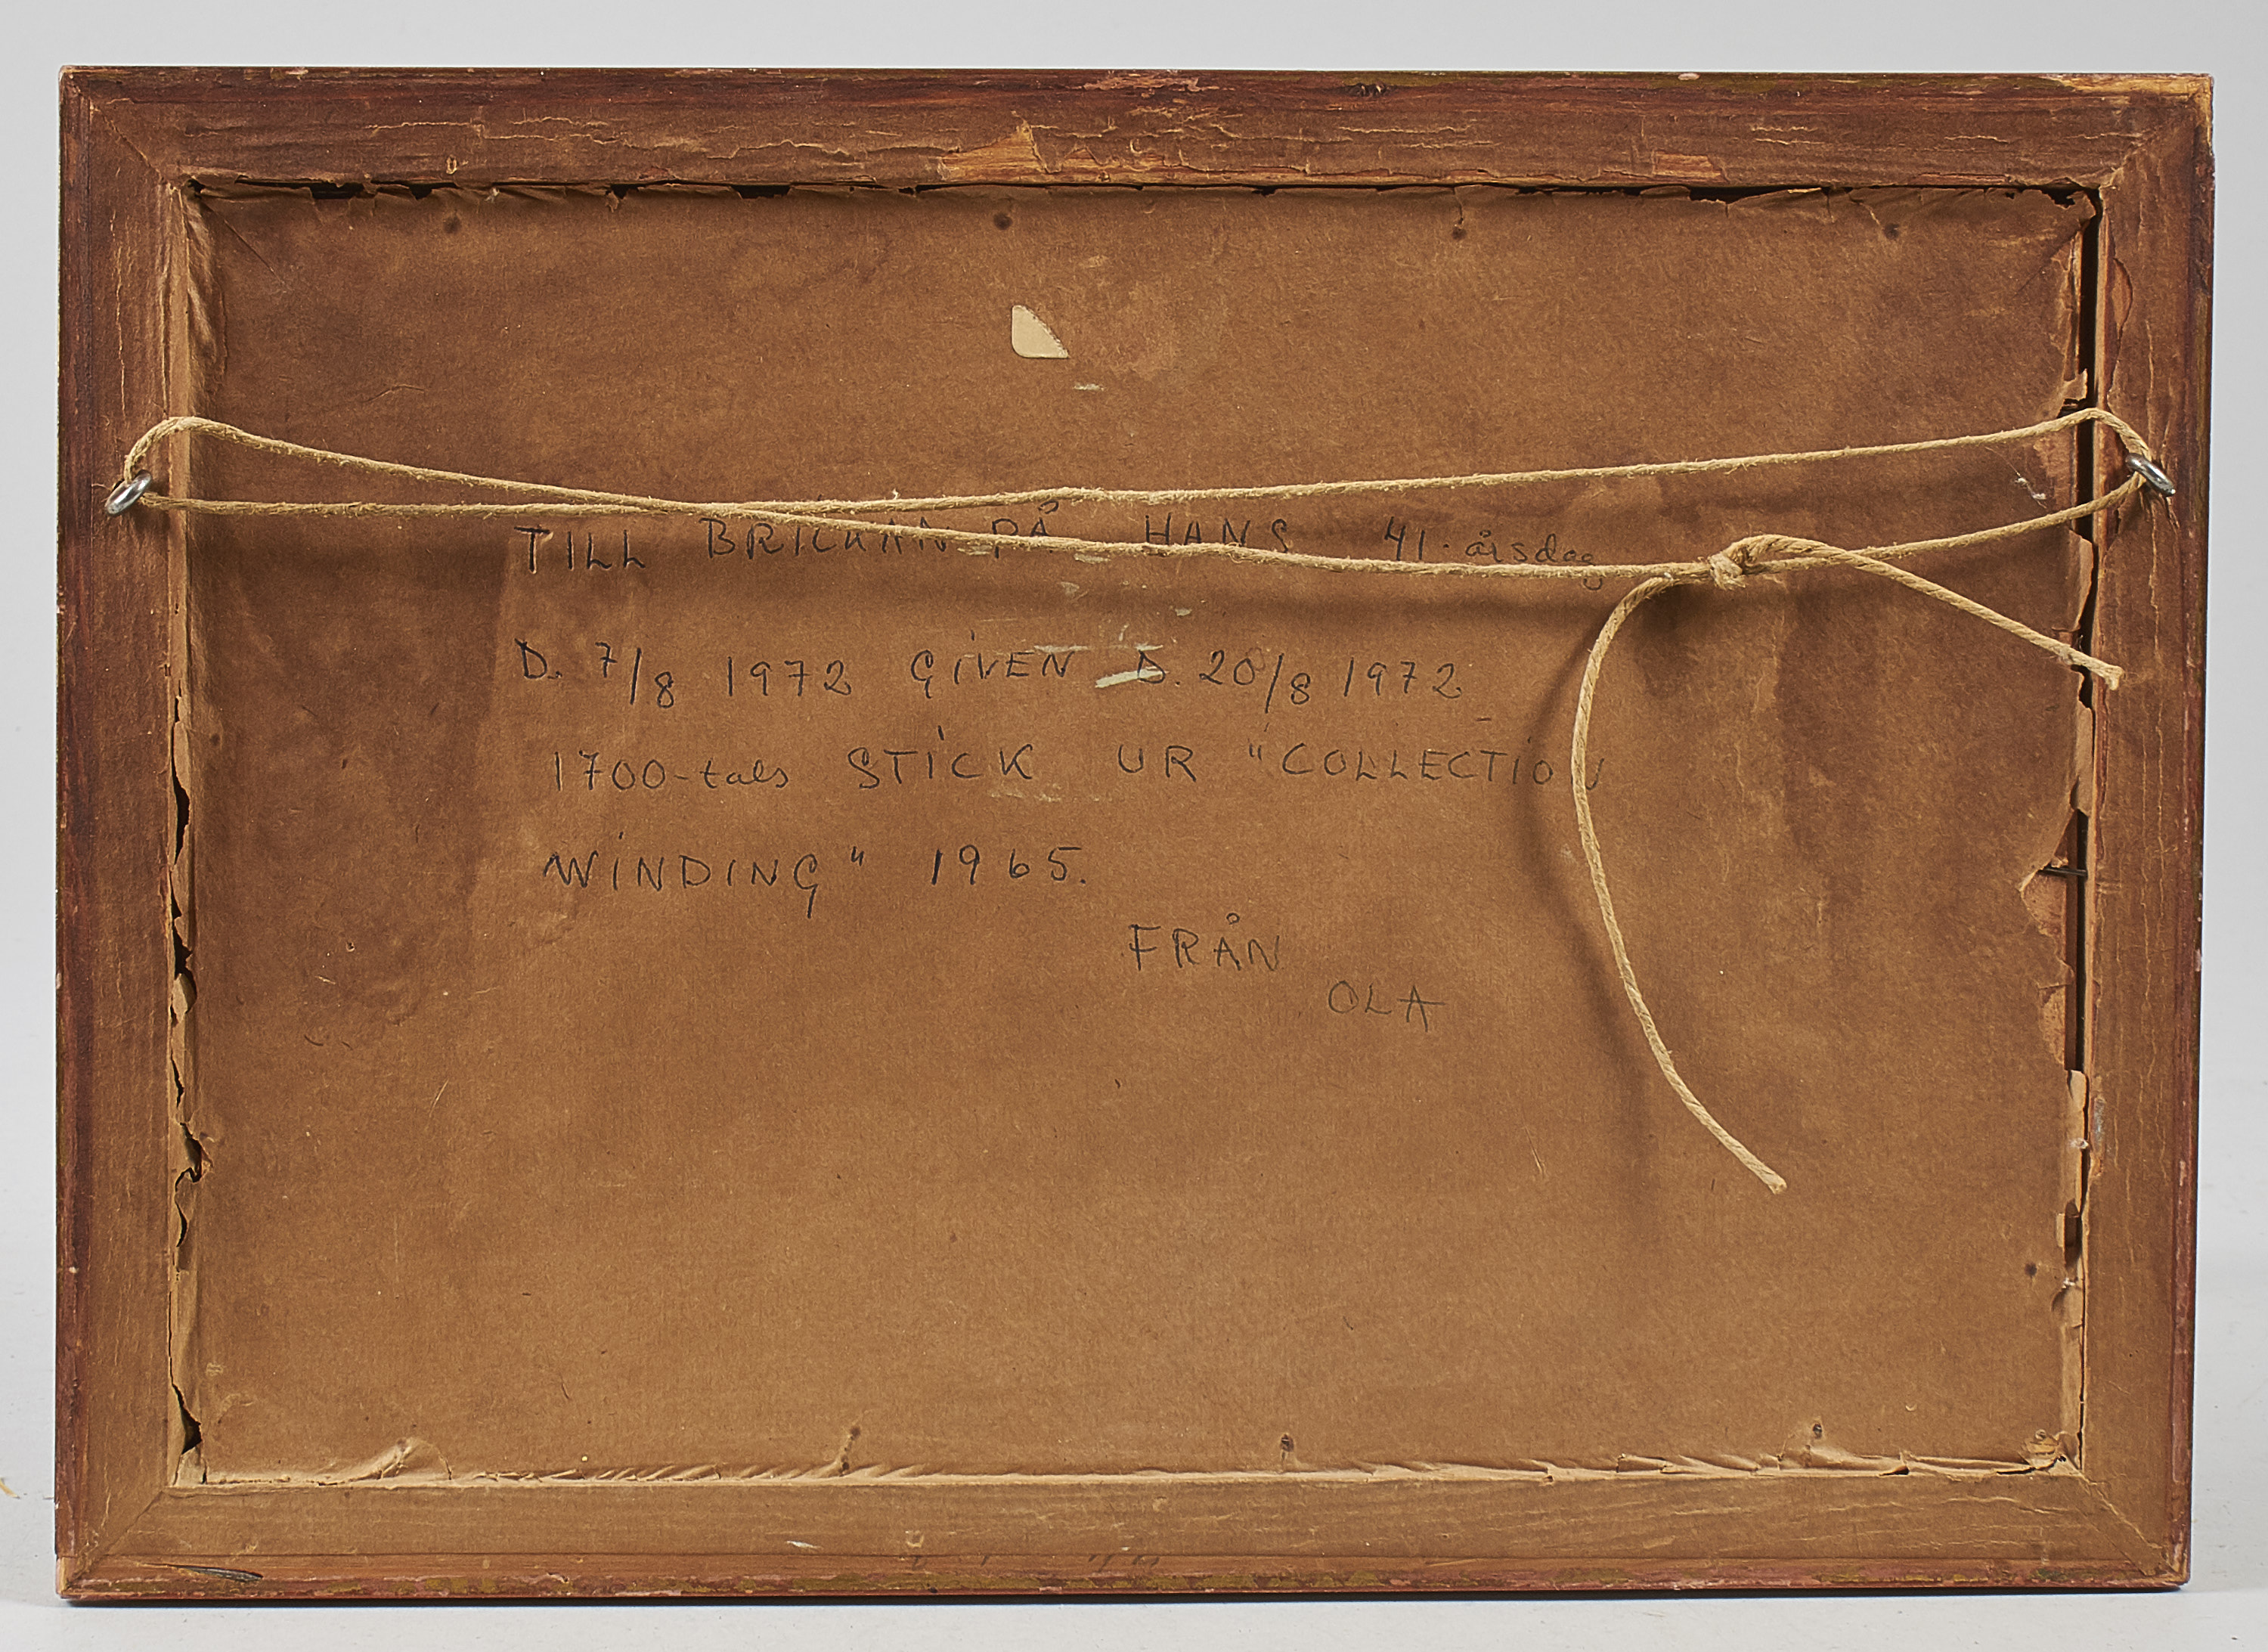 TILL BRICKAN PÅ HANS 41-årsdag
D. 7/8 1972 GIVEN D. 20/8 1972
1700-tals STICK UR "COLLECTION
WINDING" 1965.
FRÅN
OLA